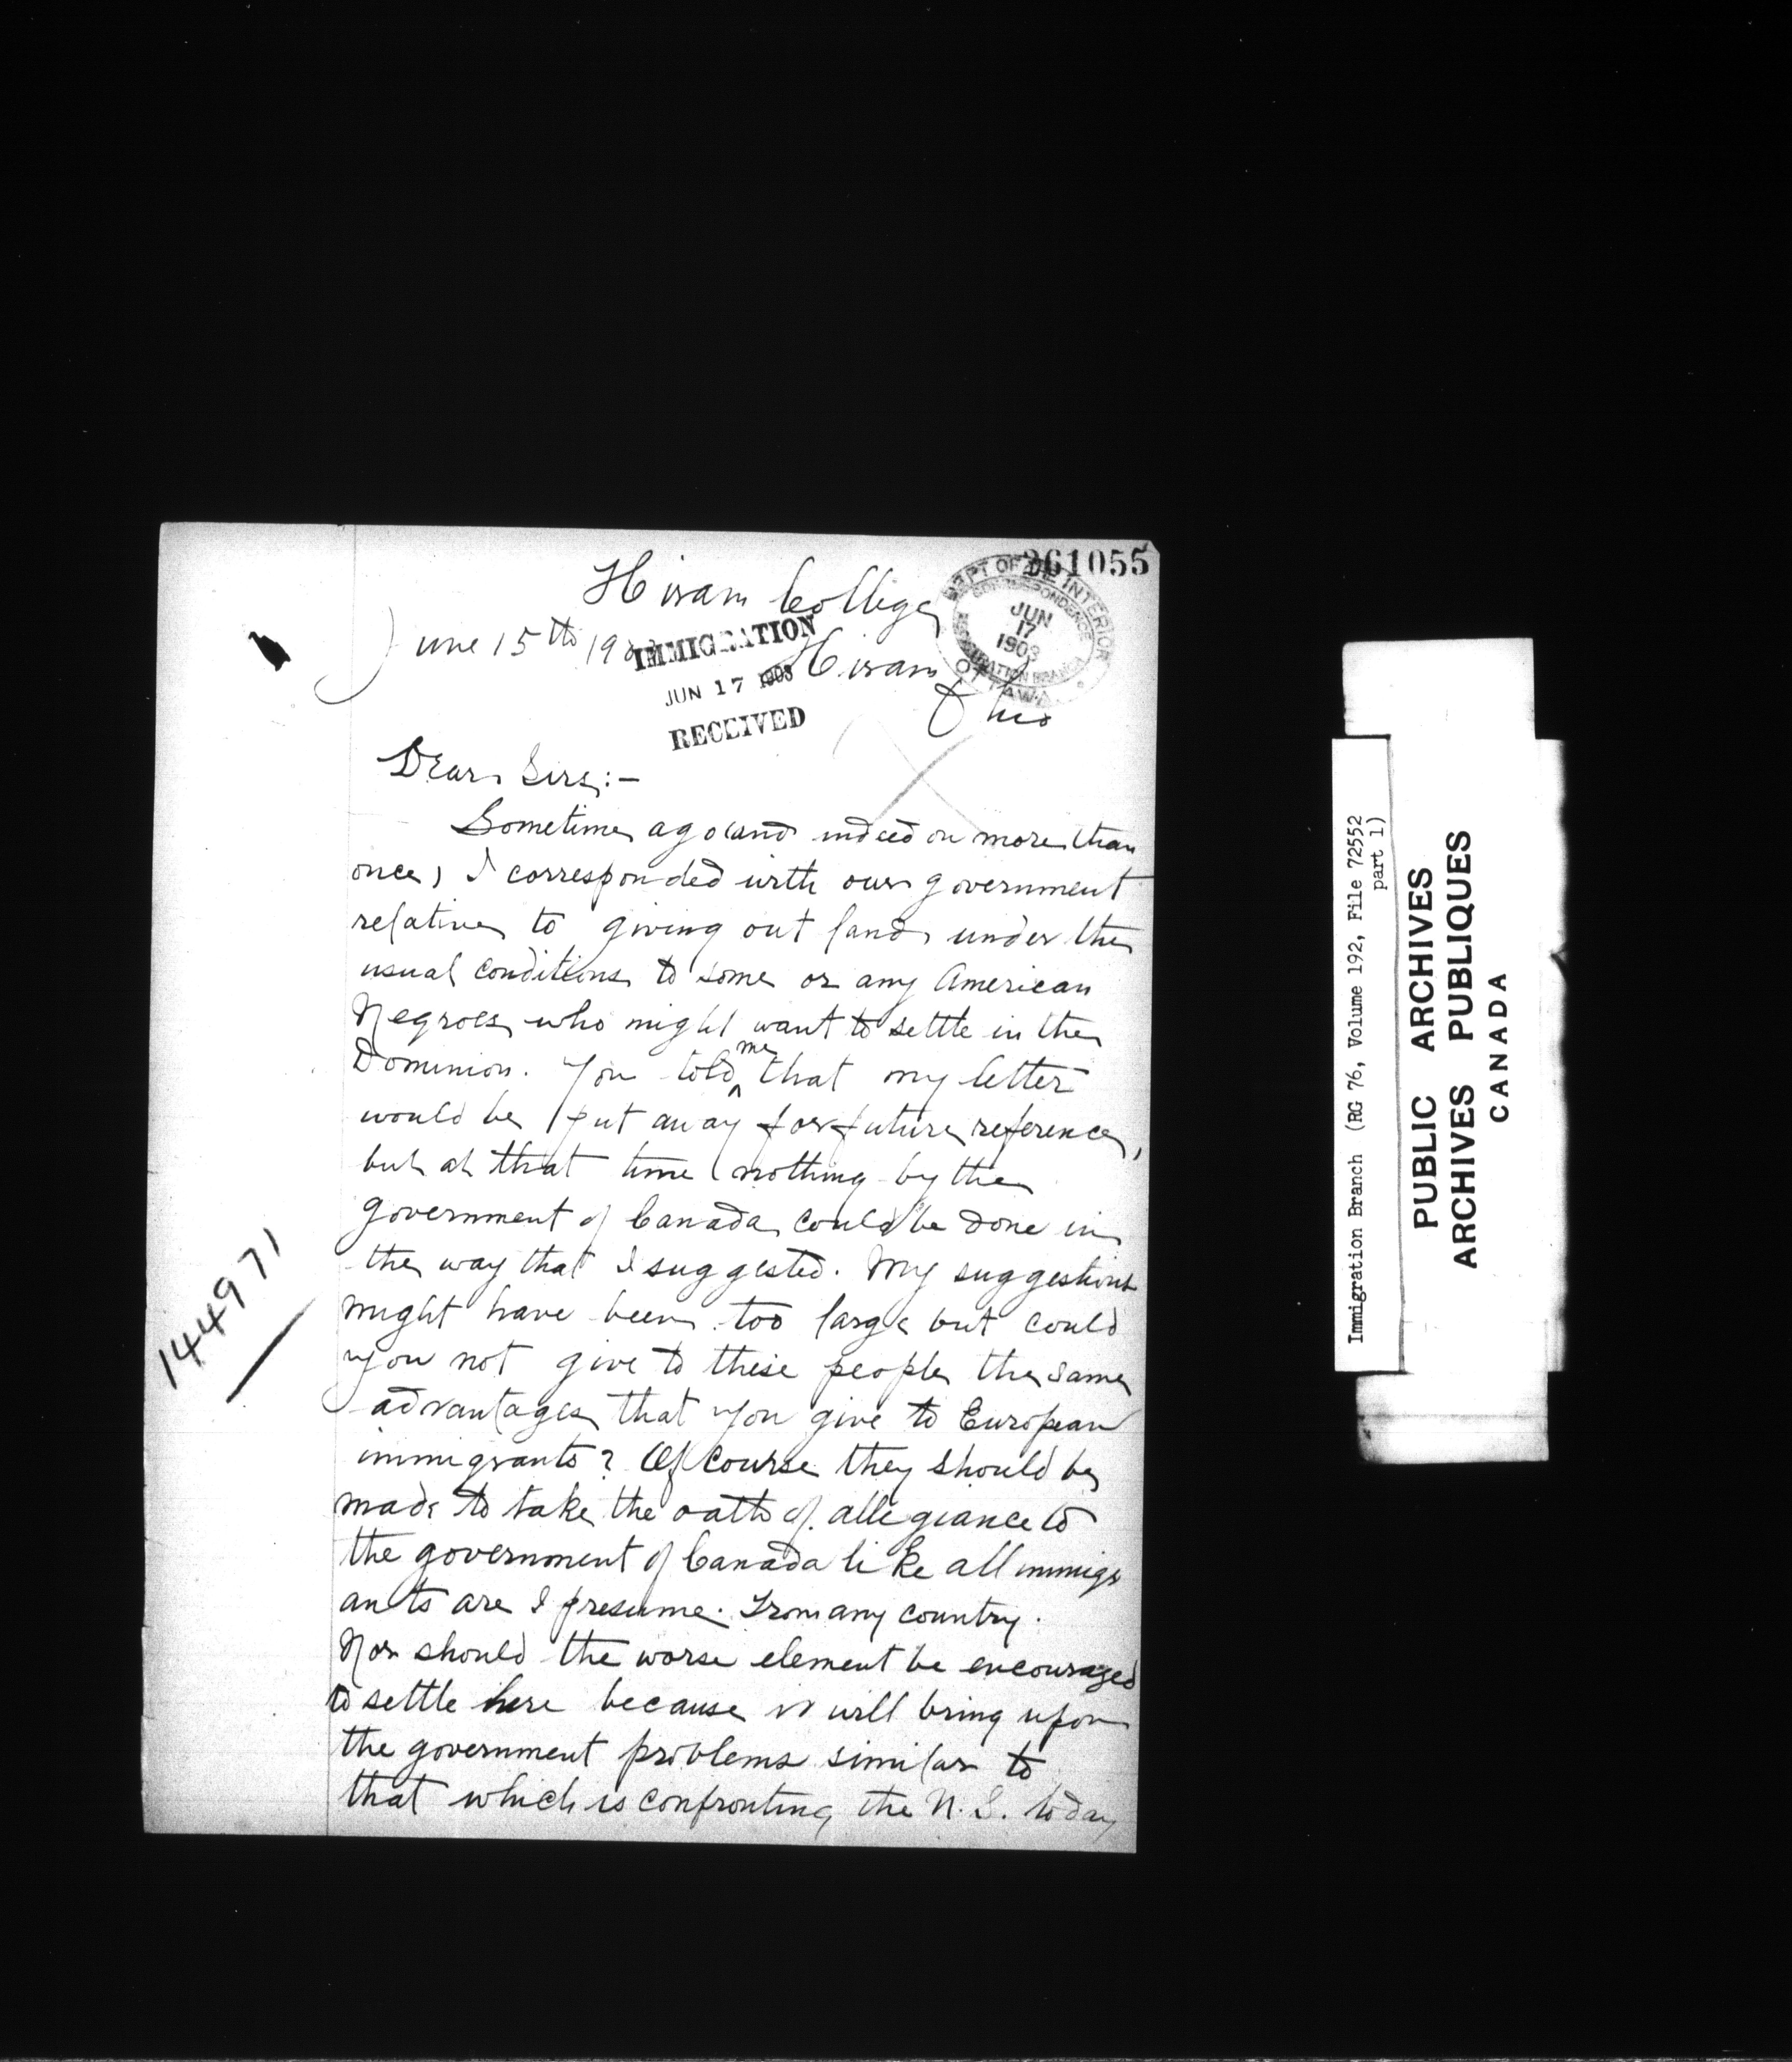 261055
DEPT OF THE INTERIOR
CORRESPONDENCE
JUN
17
1903
REGISTRATION BRANCH
OTTAWA
Hiram College
June 15th 19
IMMIGRATION
JUN 17 1903
RECEIVED
Hiram
Ohio
Dear Sirs:-
Sometime ago (and indeed on more than
once) I corresponded with our government
relative to giving out land under the
usual conditions to some or any American
Negroes who might want to settle in the
Dominion. You told me that my letter
would be put away for future reference,
but at that time nothing by the
government of Canada could be done in
the way that I suggested. My suggestions
might have been too large but could
you not give to these people the same
advantages that you give to European
immigrants? Of course they should be
made to take the oath of allegiance to
the government of Canada like all immigr
ants are I presume. From any country.
Nor should the worse element be encouraged
to settle here because it will bring upon
the government problems similar to
that which is confronting the U.S. today
144971
Immigration Branch (RG 76, Volume 192, File 72552
part 1)
PUBLIC ARCHIVES
ARCHIVES PUBLIQUES
CANADA